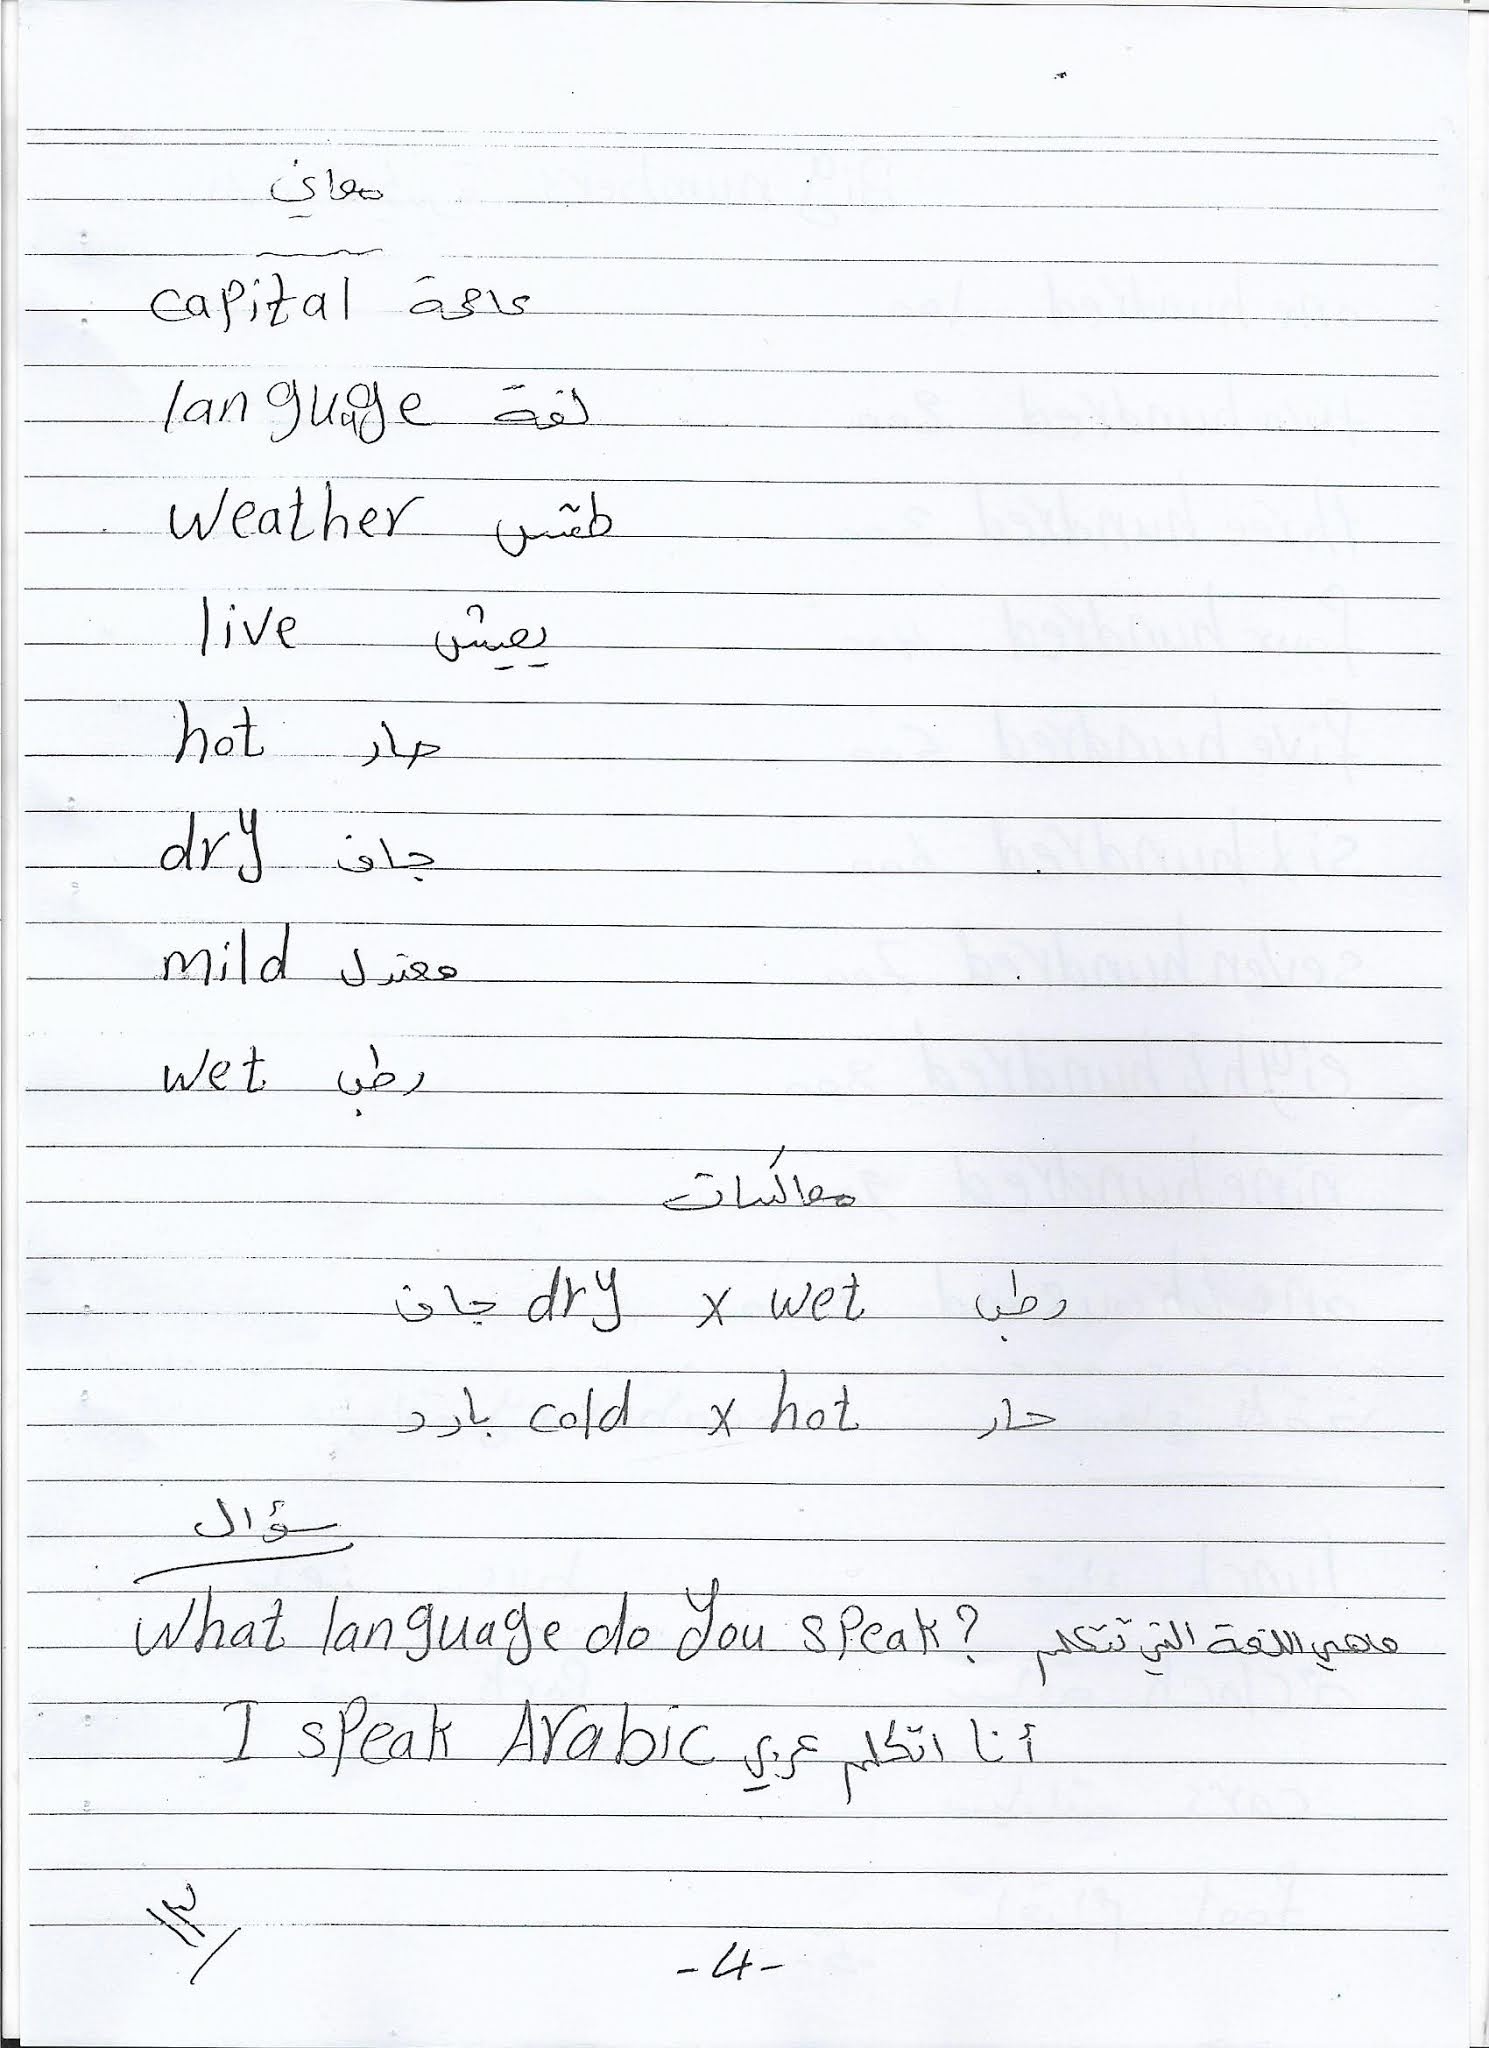 معاني
capital عاصمة
language لغة
weather طقس
live يعيش
hot حار
dry جاف
mild معتدل
wet رطب
معاكسات
جاف dry x wet رطب
بارد cold x hot حار
سؤال
What language do you speak? ماهي اللغة التي تتكلم
I speak Arabic أنا اتكلم عربي
١٣/
-4-